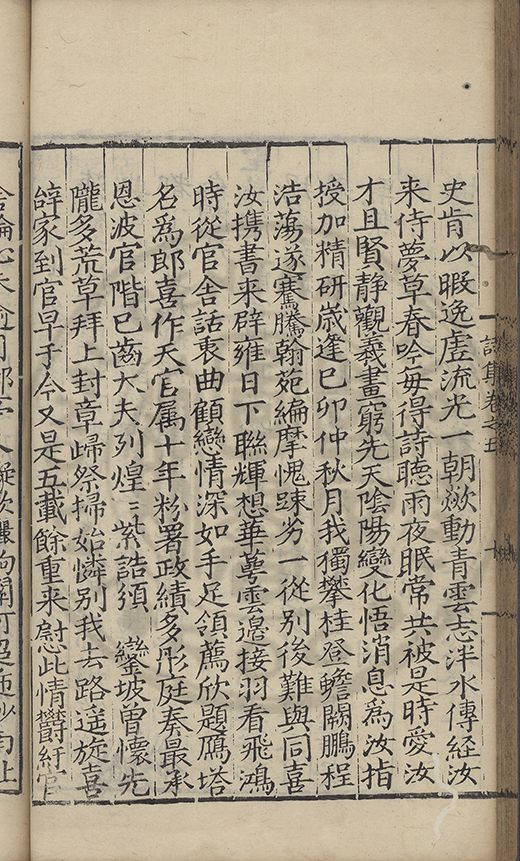 詩集卷之五
史肯以暇逸虛流光一朝欻動青雲志泮水傳經汝
来侍夢草春吟每得詩聽雨夜眠常共被是時愛汝
才且賢静觀羲畫窮先天陰陽變化悟消息為汝指
授加精研歲逢巳卯仲秋月我獨攀桂登蟾闕鵬程
浩蕩遂騫騰翰苑編摩愧踈劣一從别後難與同喜
汝携書来辟雍日下聮輝想華萼雲邊接羽看飛鴻
時從官舎話衷曲顧戀情深如手足領薦欣題鴈塔
名為郎喜作天官属十年粉署政績多彤庭奏最承
恩波官階巳齒大夫列煌〻紫誥須 鑾坡曽懷先
隴多荒草拜上封章歸祭掃始憐别我去路遥旋喜
辝家到官早于今又是五載餘重来慰此情欝紆官